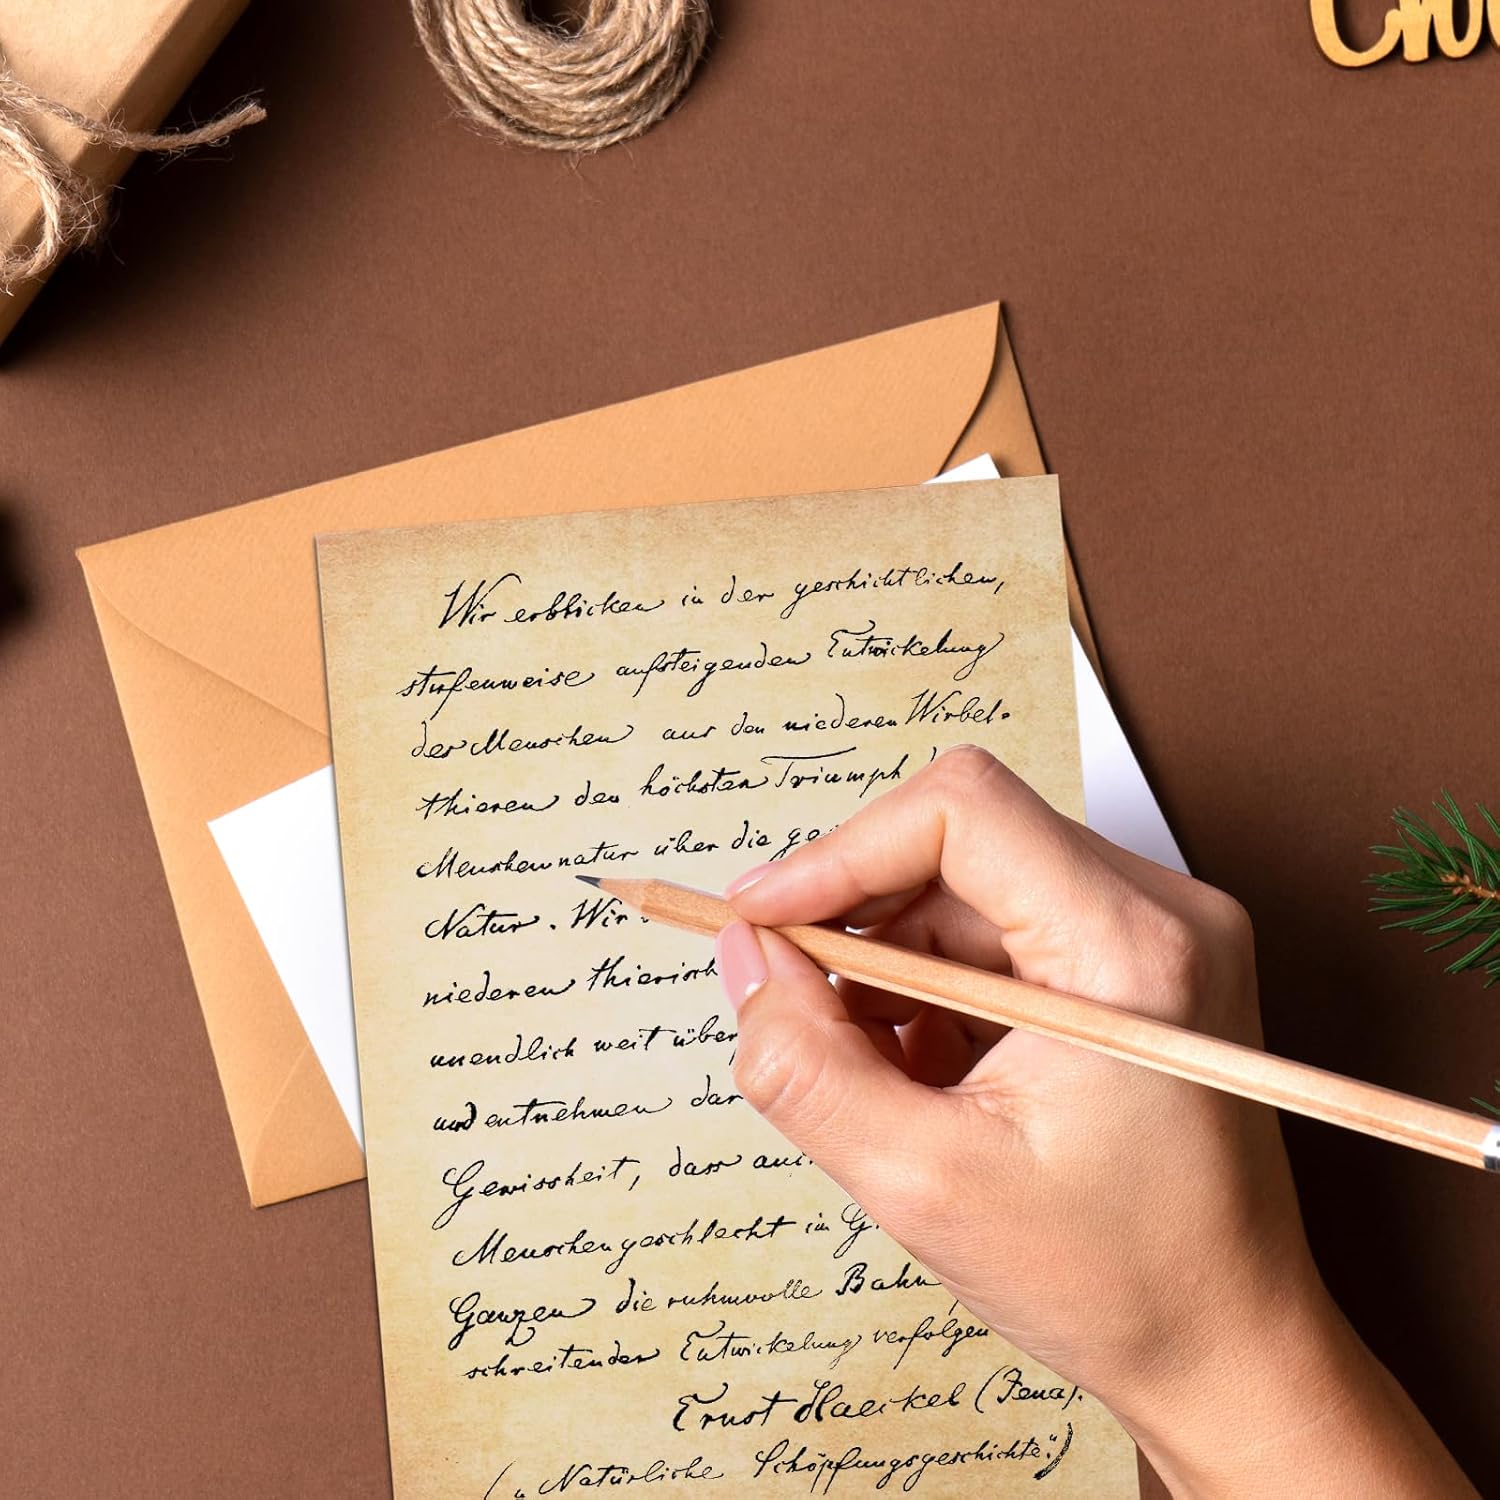 Cho
Wir erblicken in der geschichtlichen,
stufenweise aufsteigenden Entwickelung
der Menschen aus den niederen Wirbel-
thieren den höchsten Triumph
Menschennatur über die ge
Natur. Wir
niederen thierisch
unendlich weit über
und entnehmen dar
Gewissheit, dass auch
Menschengeschlecht im G
Ganzen die ruhmvolle Bahn
schreitender Entwickelung verfolgen
Ernst Haeckel (Jena).
(„Natürliche Schöpfungsgeschichte“)